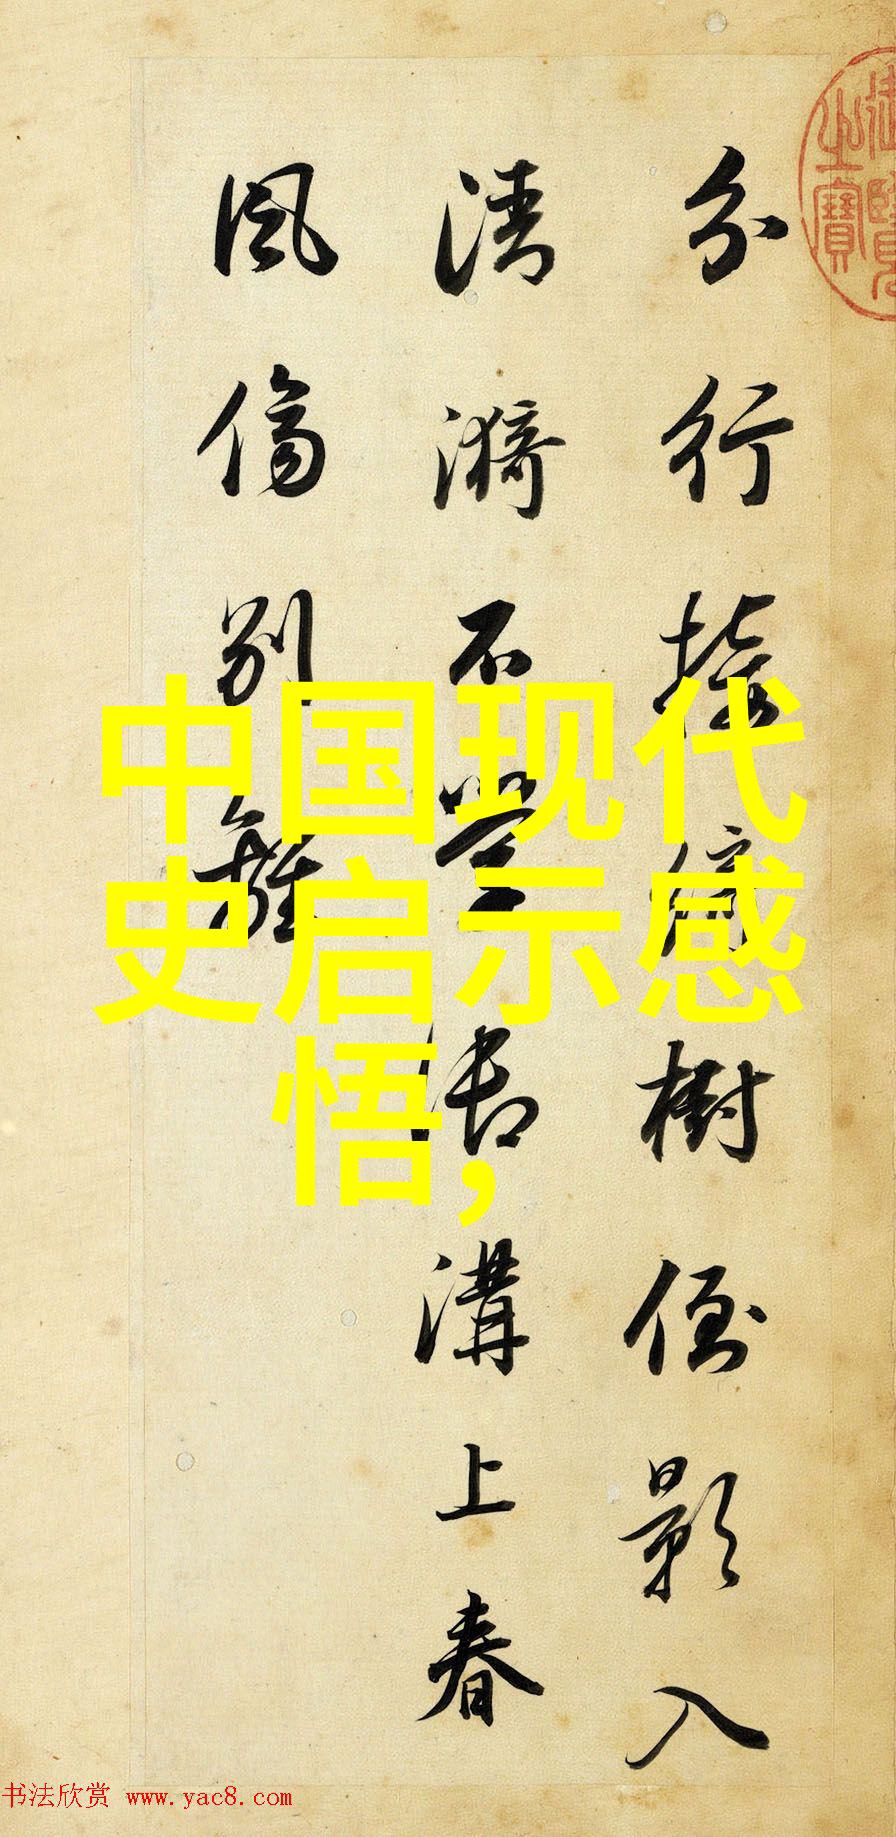 分行接綺樹倒影入
清漪不學御溝上春
風傷別離
中国现代
史启示感
悟,
书法欣赏 www.yac8.com